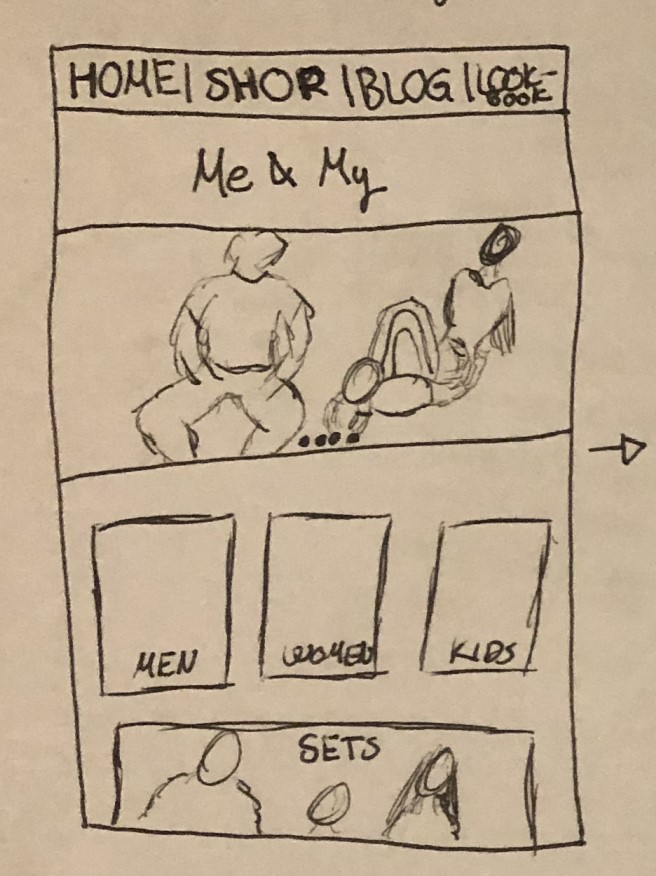 HOME | SHOP | BLOG | LOOK-
BOOK
Me & My
MEN WOMEN KIDS
SETS